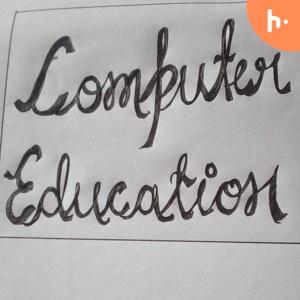 h.
Computer
Education